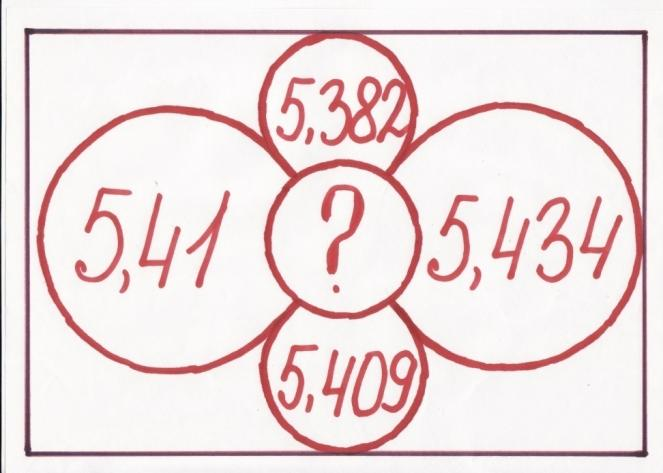 5,382
5,41
?
5,434
5,409